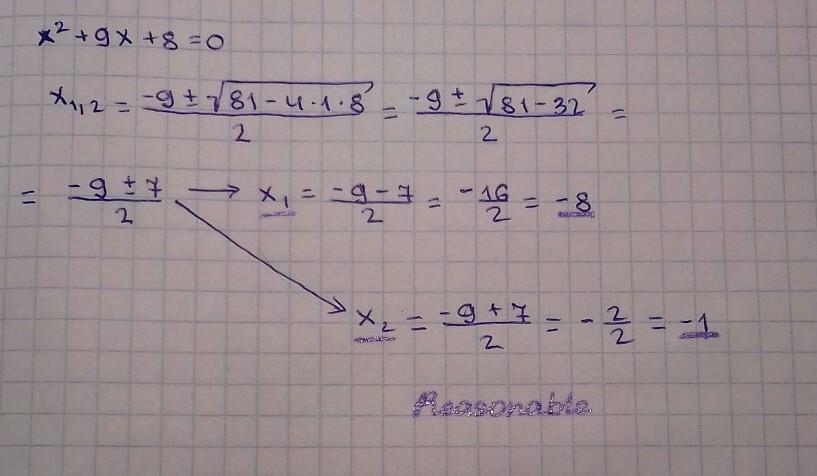 x² + 9x + 8 = 0
x₁,₂ = (-9 ± √(81 - 4·1·8))/2 = (-9 ± √(81 - 32))/2 =
= (-9 ± 7)/2 → x₁ = (-9 - 7)/2 = -16/2 = -8
x₂ = (-9 + 7)/2 = -2/2 = -1
Reasonable